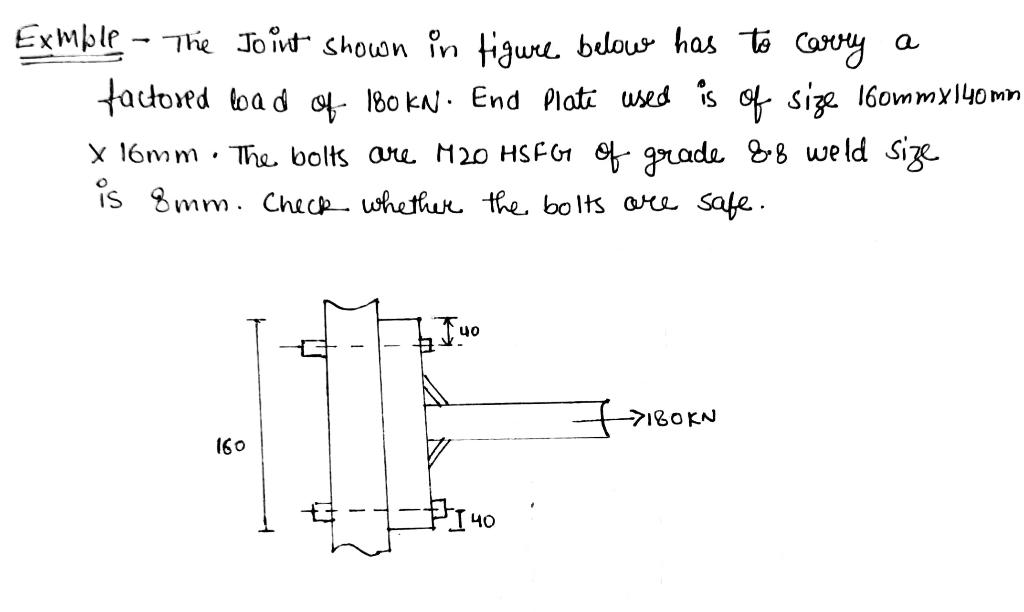 Exmple - The Joint shown in figure below has to carry a
factored load of 180 KN. End Plate used is of size 160mmX140mm
X 16mm. The bolts are M20 HSFG of grade 8.8 weld size
is 8mm. Check whether the bolts are safe.
40
180KN
160
40